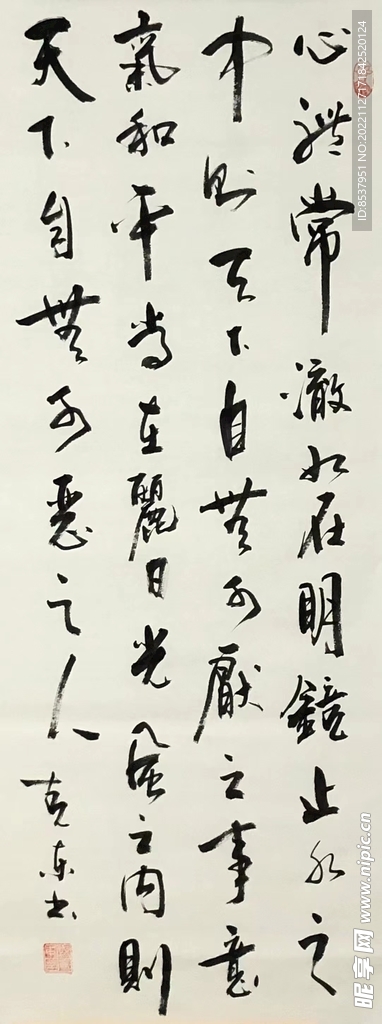 心體常澈如在明鏡止水之
中則天下自無可厭之事意
氣和平常在麗日光風之内則
天下自無可惡之人
克东书
ID:8537951 NO:20221127171842520124
昵享网 www.nipic.cn